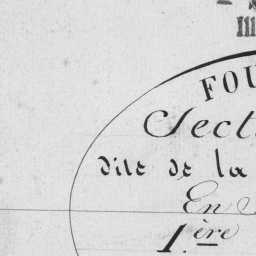 III
FOU
Secti
dite de la
En
1.ère